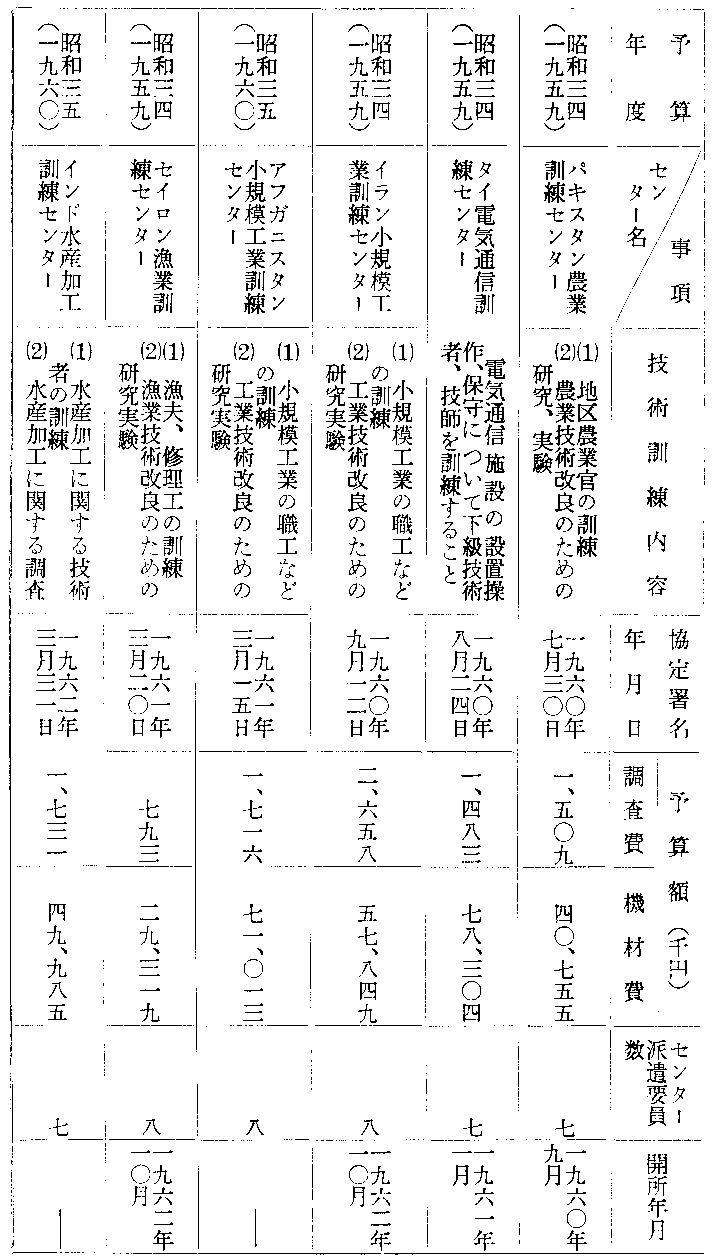 予算
年度
事項
セン
ター名
技術訓練内容
協定署名
年月日
予算額(千円)
調査費
機材費
センター
派遣要員
数
開所年月
昭和三四
(一九五九)
パキスタン農業
訓練センター
⑴ 地区農業官の訓練
⑵ 農業技術改良のための
研究、実験
一九六〇年
七月三〇日
一、五〇九
四〇、七五五
七
一九六〇年
九月
昭和三四
(一九五九)
タイ電気通信訓
練センター
電気通信施設の設置操
作、保守について下級技術
者、技師を訓練すること
一九六〇年
八月二四日
一、四八三
七八、三〇四
七
一九六一年
一月
昭和三四
(一九五九)
イラン小規模工
業訓練センター
⑴ 小規模工業の職工など
の訓練
⑵ 工業技術改良のための
研究実験
一九六〇年
九月一二日
二、六五八
五七、八四九
八
一九六二年
一〇月
昭和三五
(一九六〇)
アフガニスタン
小規模工業訓練
センター
⑴ 小規模工業の職工など
の訓練
⑵ 工業技術改良のための
研究実験
一九六一年
三月一五日
一、七一六
七一、〇一三
八
―
昭和三四
(一九五九)
セイロン漁業訓
練センター
⑴ 漁夫、修理工の訓練
⑵ 漁業技術改良のための
研究実験
一九六一年
三月二〇日
七九三
二九、三一九
八
一九六二年
一〇月
昭和三五
(一九六〇)
インド水産加工
訓練センター
⑴ 水産加工に関する技術
者の訓練
⑵ 水産加工に関する調査
一九六二年
三月三一日
一、七三一
四九、九八五
七
―